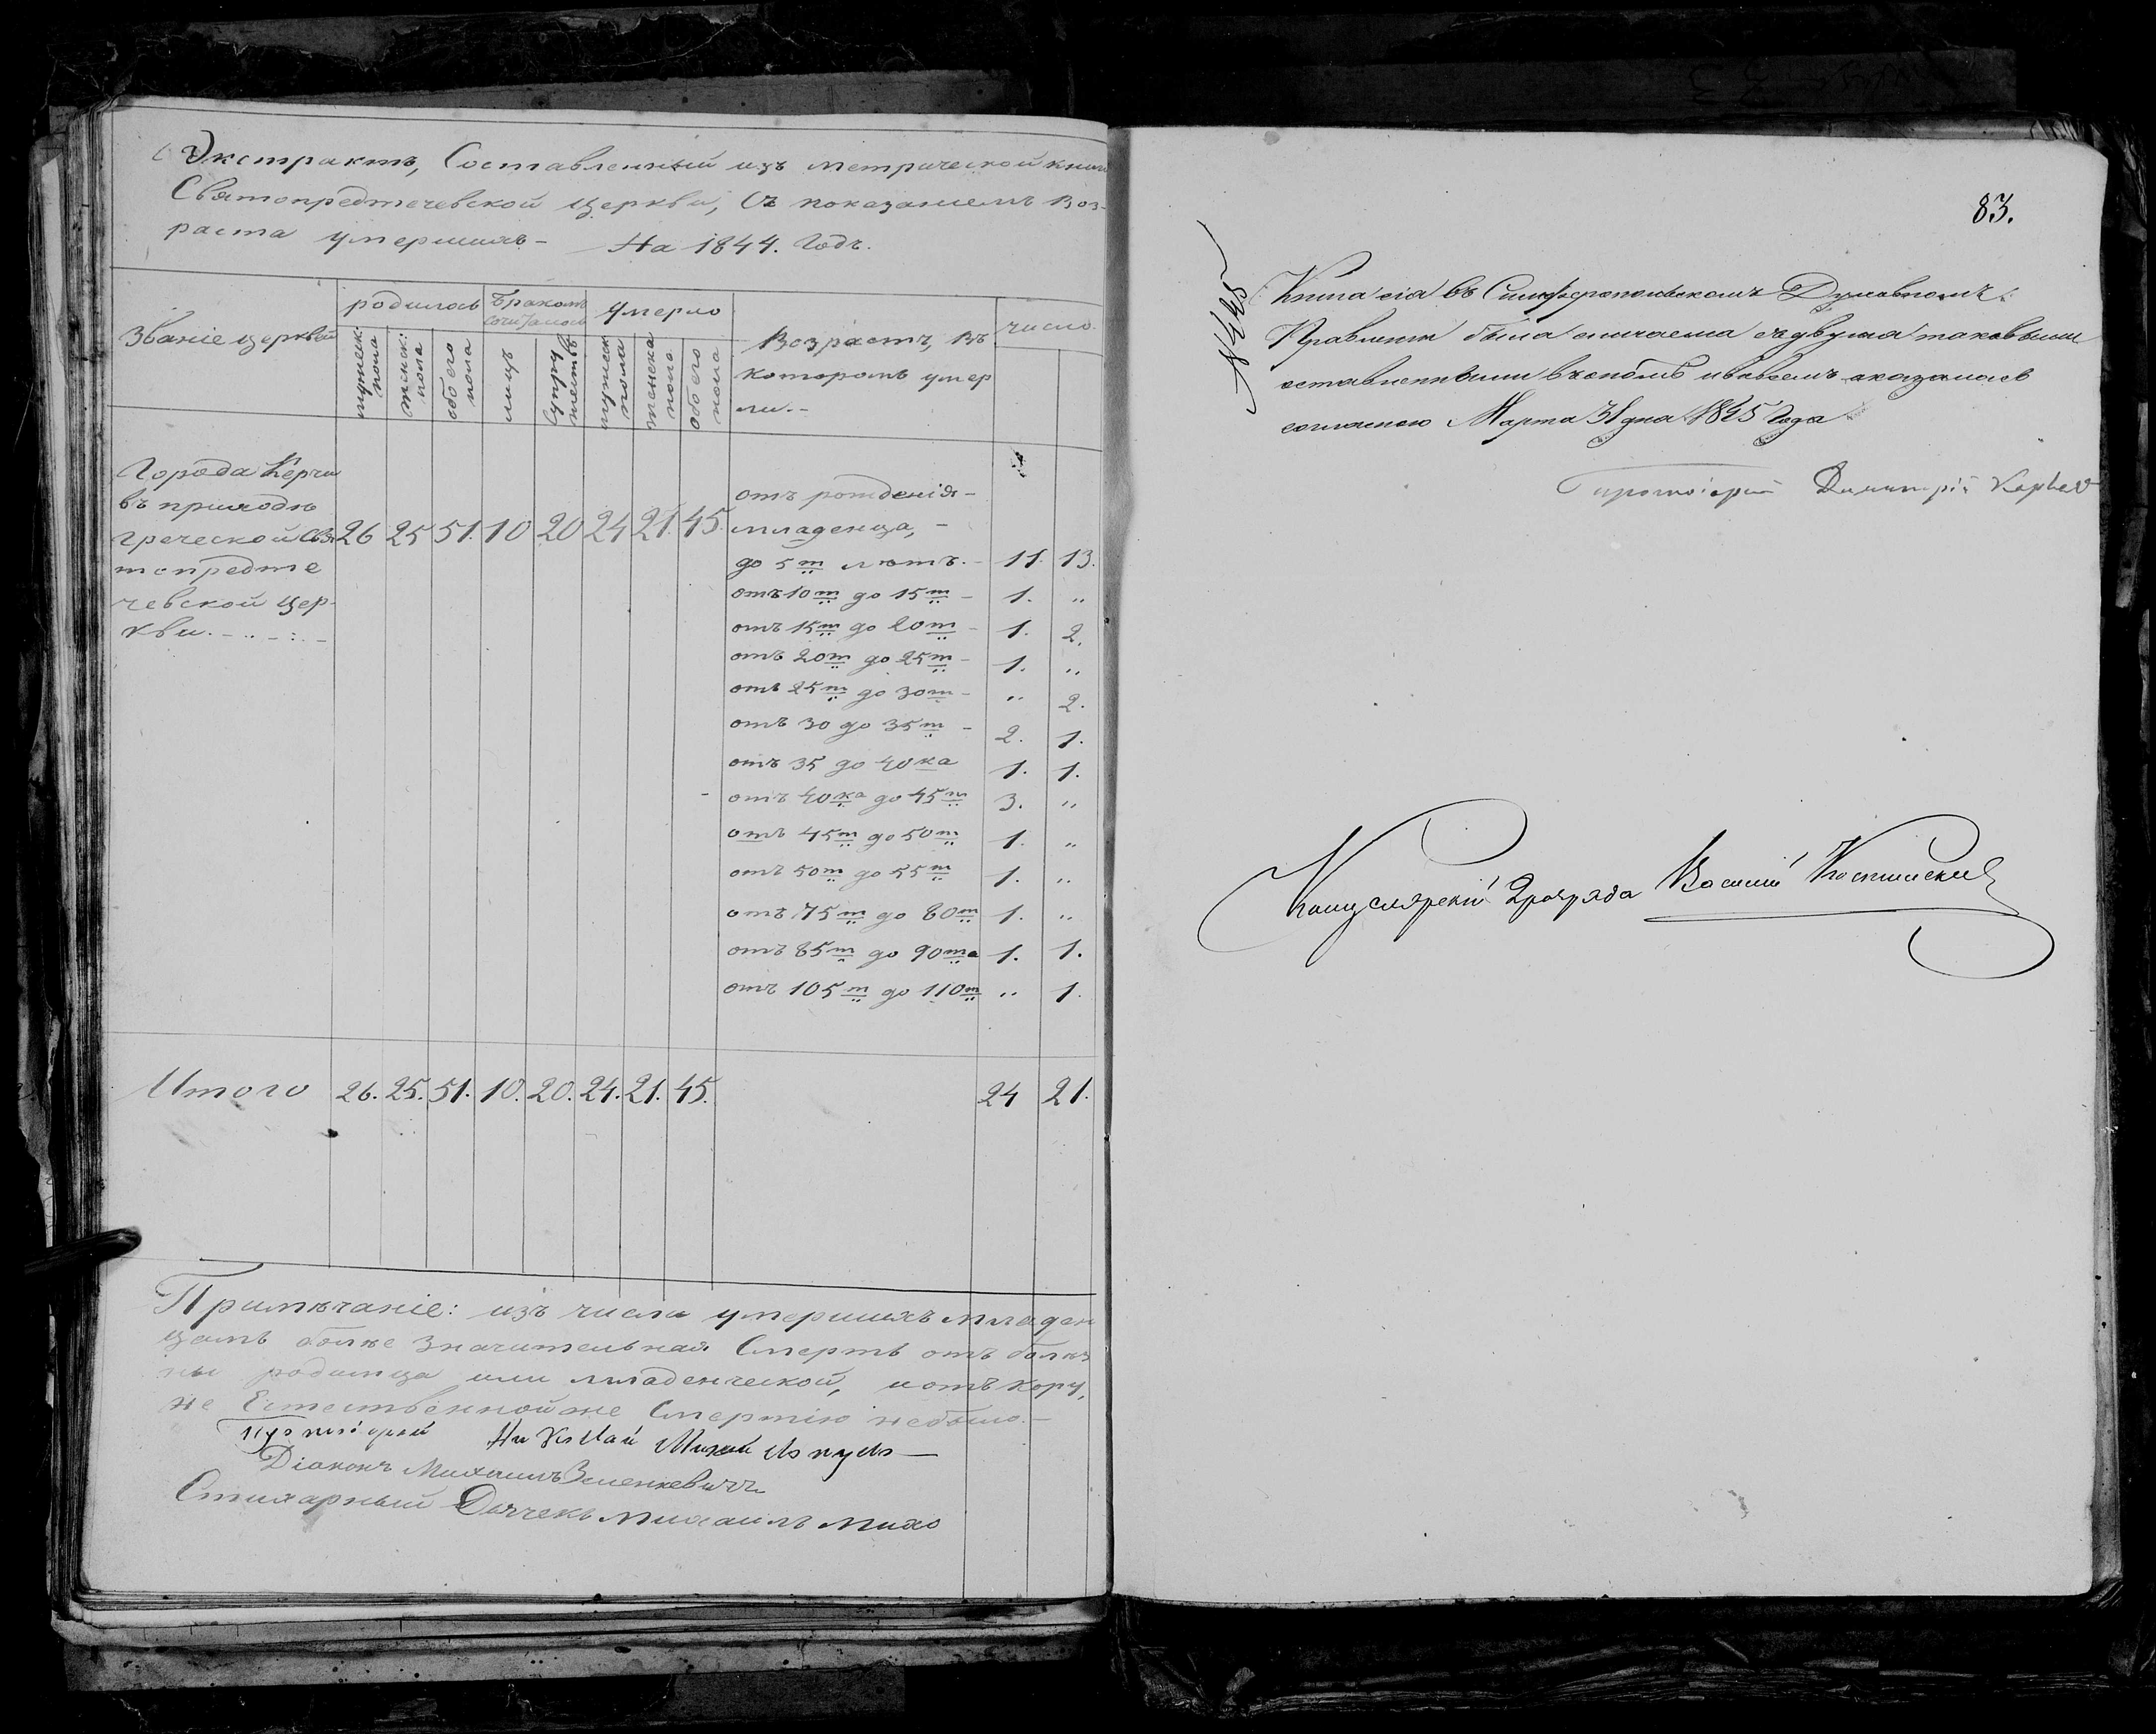 Экстрактъ, Составленный изъ метрической книги
Святопредтечевской Церкви, Съ показаніемъ Воз-
раста умершихъ - На 1844. Годъ.
Званіе церквей
родилось
бракомъ сочиталось
умерло
Возрастъ, въ
которомъ умер
ли. -
число
мужеск: пола
женск: пола
обоего пола
лицъ
супружествъ
мужеск пола
женска пола
обоего пола
Города Керчи
въ приходѣ
Греческой Свя
топредте
чевской Цер-
кви.
26 25 51. 10 20 24 21. 45.
отъ рожденія -
младенца, -
до 5т лѣтъ. - 11. 13.
отъ 10т до 15т - 1. "
отъ 15т до 20т - 1. 2.
отъ 20т до 25т - 1. "
отъ 25т до 30т - " 2.
отъ 30 до 35т - 2. 1.
отъ 35 до 40ка 1. 1.
отъ 40ка до 45т 3. "
отъ 45т до 50т 1. "
отъ 50т до 55т 1. "
отъ 75т до 80т 1. "
отъ 85т до 90та 1. 1.
отъ 105т до 110т " 1.
Итого 26. 25. 51. 10. 20. 24. 21. 45. 24 21.
Примѣчаніе: изъ числа умершихъ младен
цамъ болѣе значительная Смерть отъ болѣз
ни родимца или младенческой, и отъ кору,
не Естественной же Смертію небыло. -
Протоіерей Николай
Діаконъ Михаилъ Зеленкевичъ
Стихарный Дьячекъ Михаилъ Михо
83.
№ 445
Книга сія въ Симферопольскомъ Духовномъ
Правленіи была сличаема съ двумя таковыми
оставленными въ ономъ и во всемъ оказалась
согласною Марта 31 дня 1845 Года
Протоіерей Димитрій
Канцелярскій 2 разряда Василій